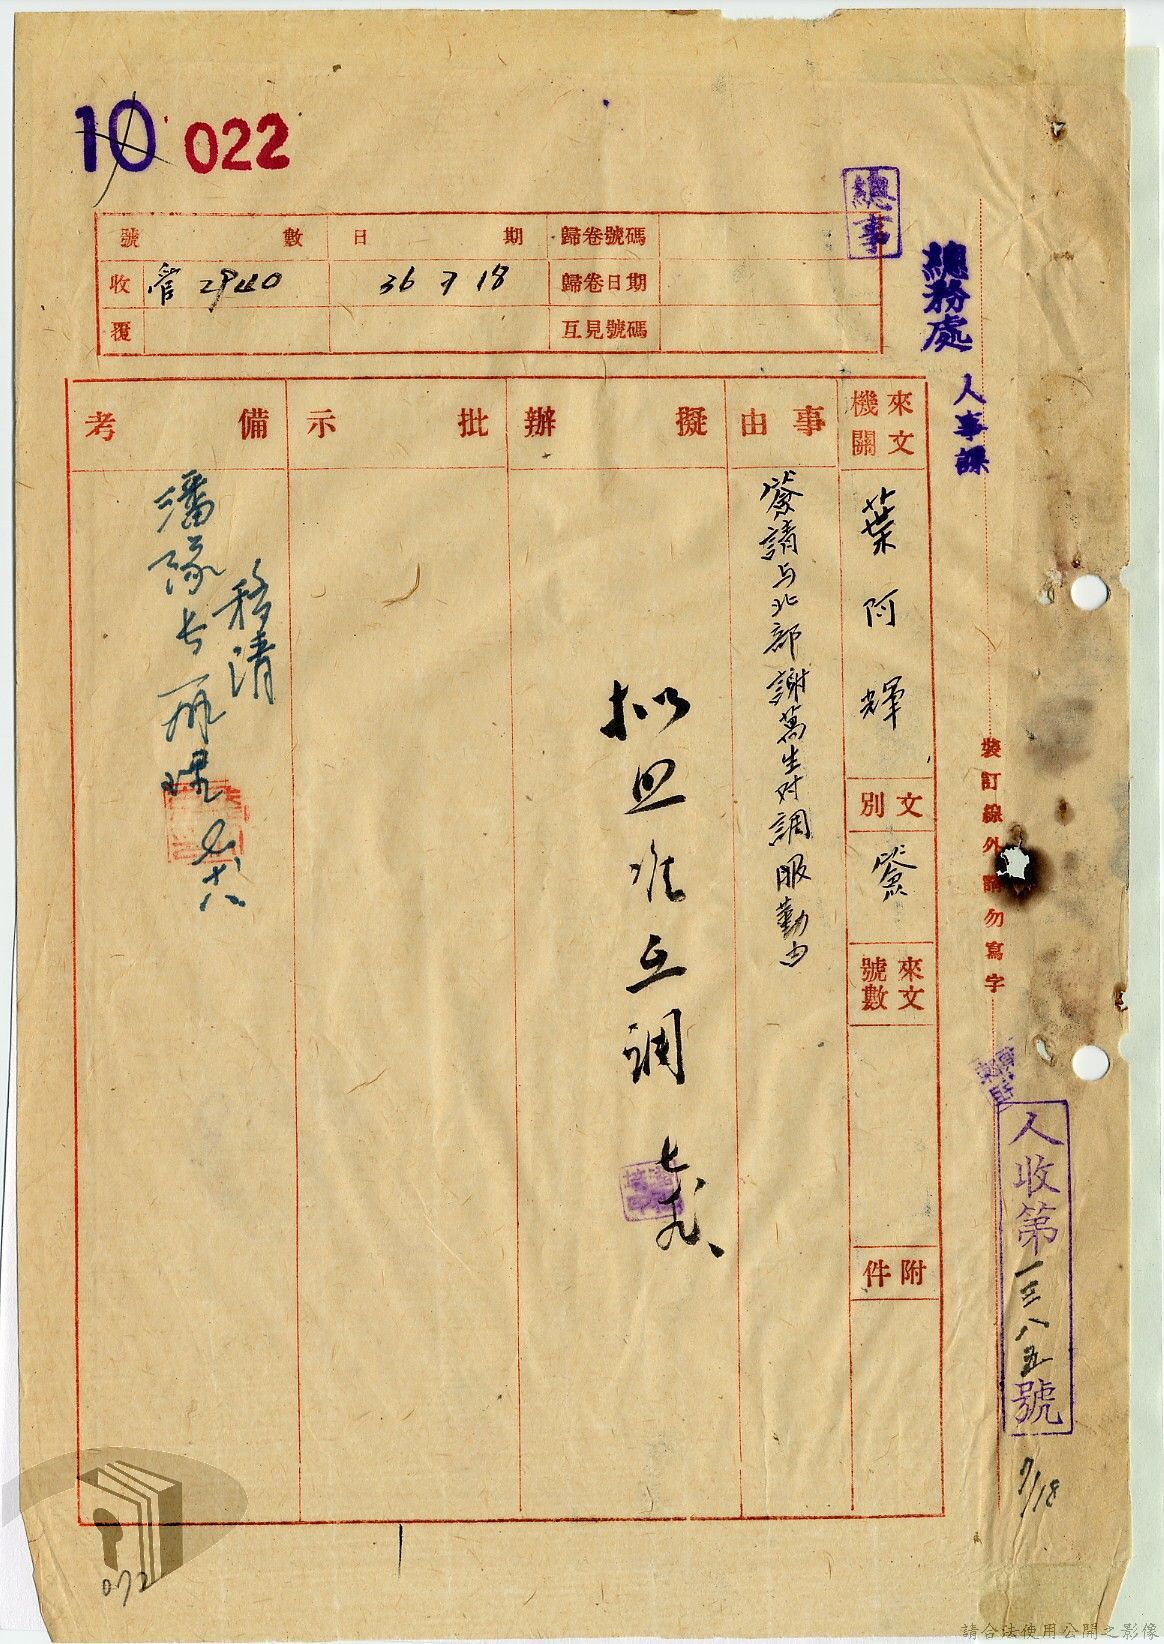 10 022
總事
總務處
人事課
號數 日期 歸卷號碼
收 管2940 36 7 18 歸卷日期
覆 互見號碼
來文機關
葉阿輝
文別
簽
來文號數
附件
事由
簽請与北部謝萬生对調服勤由
擬辦
拟照准互調
七、九、
批示
備考
移請
潘隊長辦理
七、十八
裝訂線外請勿寫字
人收第一三八五號
7/18
072
請合法使用公開之影像